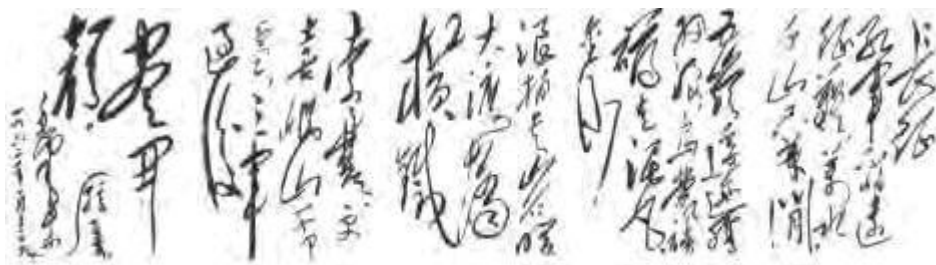 長征
紅軍不怕遠
征難萬水
千山只等閒
五嶺逶迤騰
細浪烏蒙磅
礴走泥丸
金沙
浪拍崖暖
大渡橋
橫鐵
索寒更
喜岷山千里
雪三軍
過後
盡開
顏
毛澤東